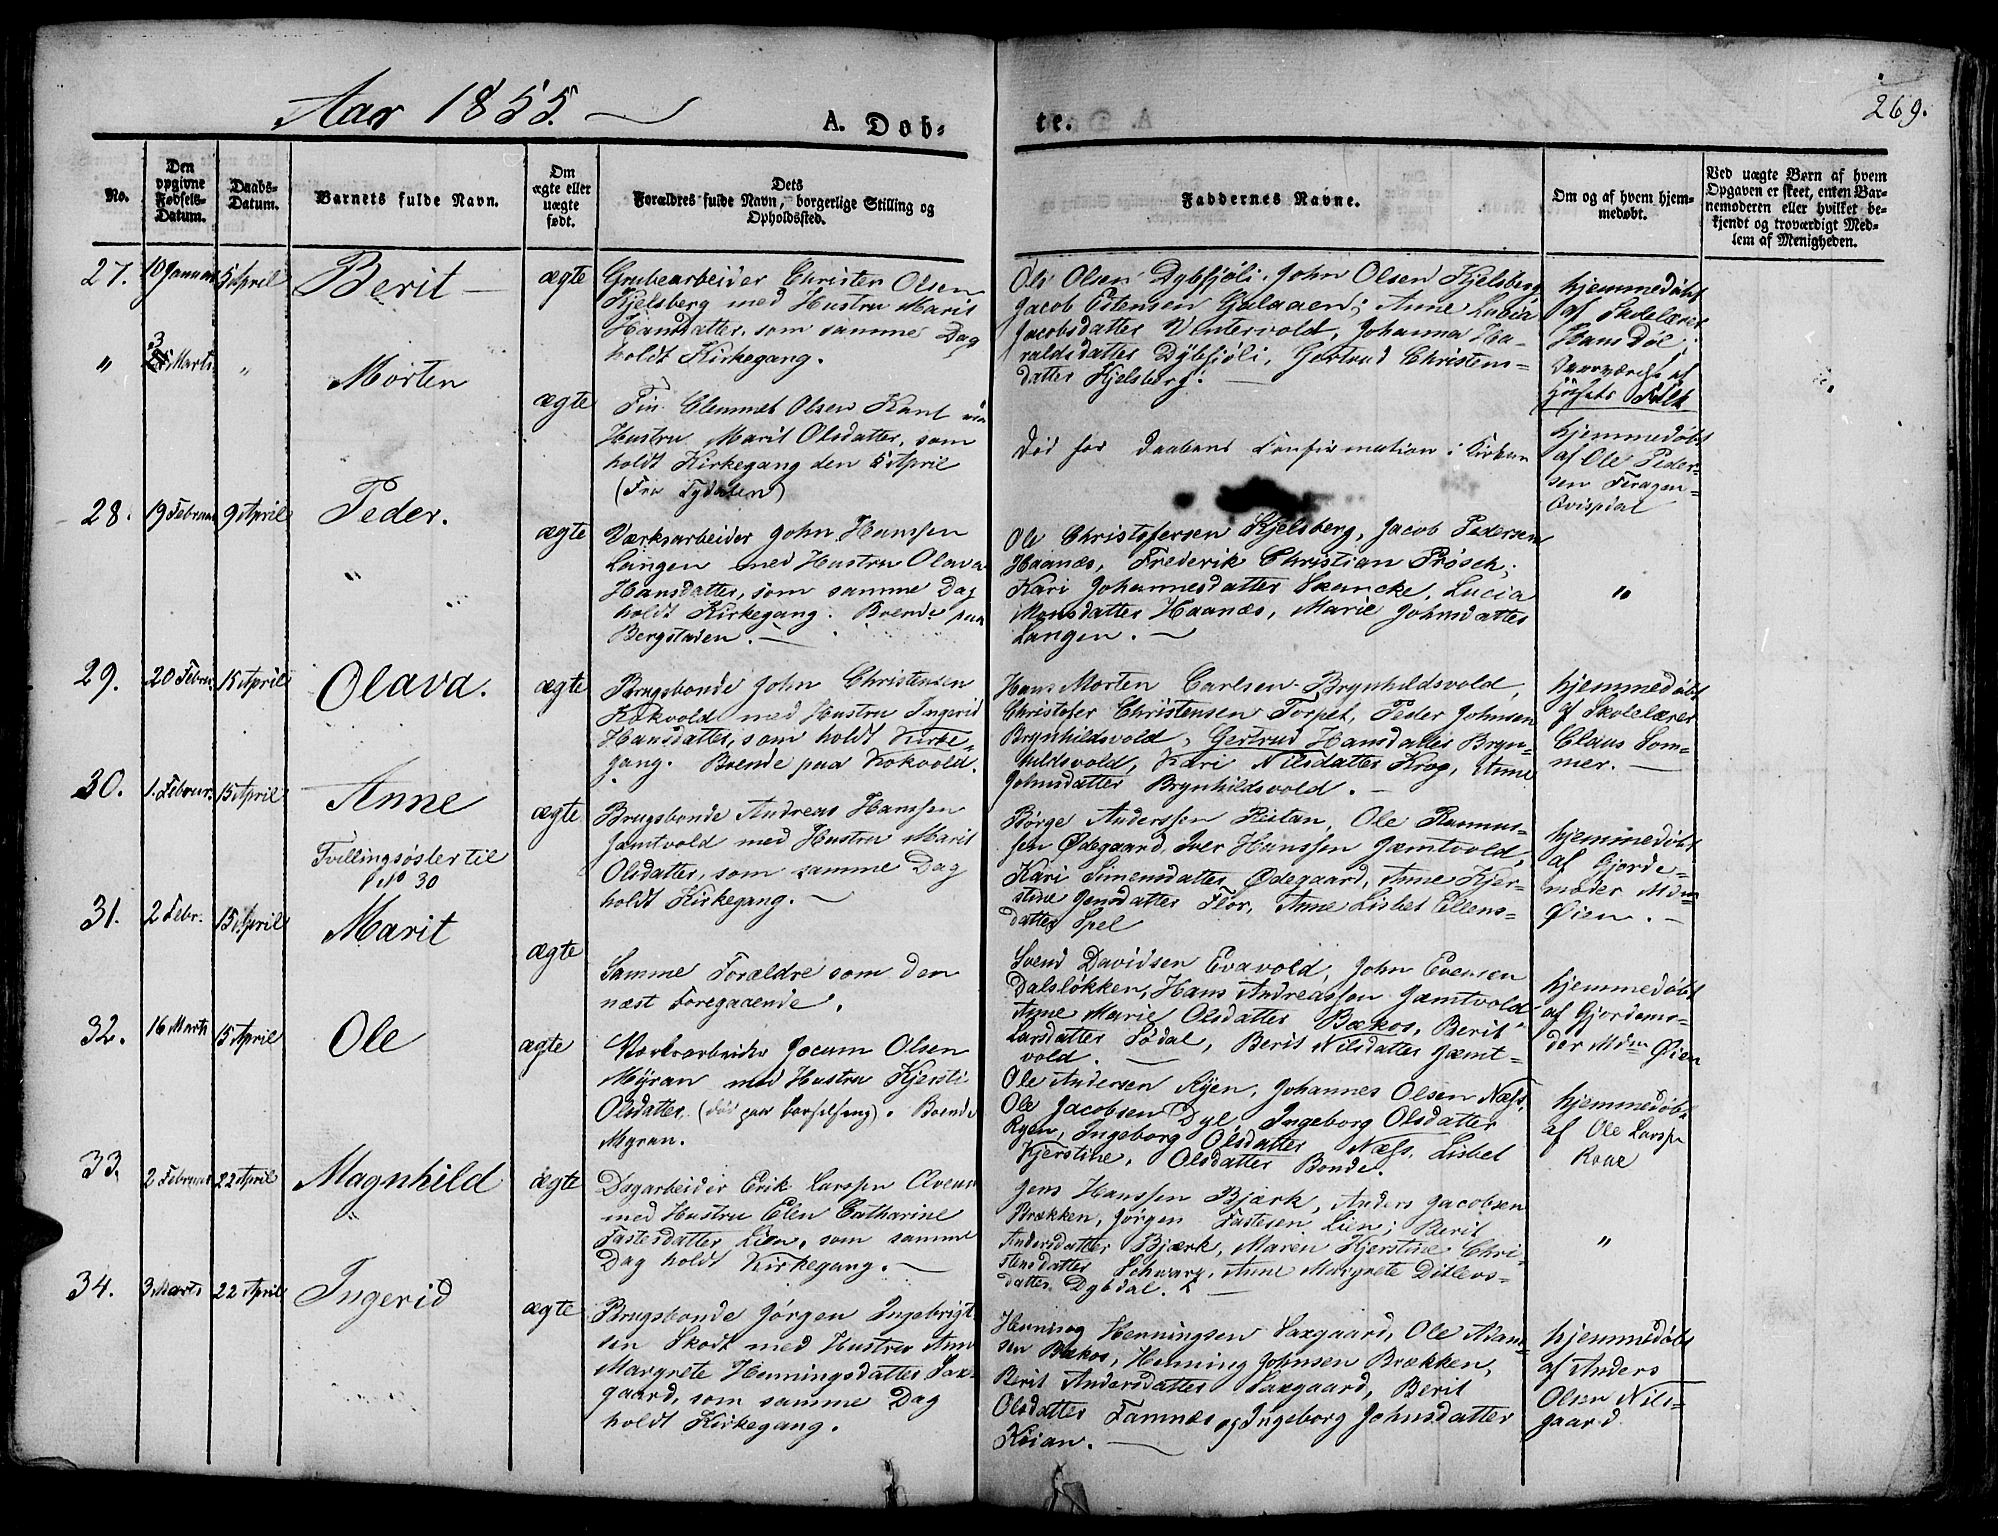 Aar 1855.
A. Døb-
te.
269.
No.
Den opgivne Fødsels-Datum.
Daabs-Datum.
Barnets fulde Navn.
Om ægte eller uægte født.
Forældres fulde Navn, Dets borgerlige Stilling og Opholdssted.
Faddernes Navne.
Om og af hvem hjem-
medøbt.
Ved uægte Børn af hvem
Opgaven er skeet, enten Bar-
nemoderen eller hvilket be-
kjendt og troværdigt Med-
lem af Menigheden.
27. 10 Januar 5 April Berit ægte
Grubearbeider Christen Olsen
Kjelsberg med Hustru Marit
Hansdatter, som samme Dag
holdt Kirkegang.
Ole Olsen Dybfjøli, John Olsen Kjelsberg
Jacob Estensen Gjelaaen; Anne Lucia
Jacobsdatter Vintervold, Johanna Ha-
raldsdatter Dybfjøli, Gertrud Christens-
datter Kjelsberg.
hjemmedøbt
af Skolelærer
Hans Døl,
Huusets Folk
" 3 Marts " Morten ægte
Fin Clemmet Olsen Kant
Hustru Marit Olsdatter, som
holdt Kirkegang den 5 April
(Fra Tydalen)
Død før Daabens Confirmation i Kirken
hjemmedøbt
af Ole Peder-
sen Feragen-
28. 19 Februar 9 April Peder. ægte
Værksarbeider John Hansen
Langen med Hustru Olava
Hansdatter, som samme Dag
holdt Kirkegang. Boende paa
Bergstaden.
Ole Christofersen Kjelsberg, Jacob Pedersen
Haanæs, Frederik Christian Prøsch;
Kari Johannesdatter Skancke, Lucia
Monsdatter Haanæs, Marie Johnsdatter
Langen.
"
29. 20 Februar 15 April Olava. ægte
Brugsbonde John Christensen
Kokvold med Hustru Ingerid
Hansdatter, som holdt Kirke-
gang. Boende paa Kokvold.
Hans Morten Carlsen Brynhildsvold,
Christofer Christensen Torpet, Peder Johnsen
Brynhildsvold, Gertrud Hansdatter Bryn-
hildsvold, Kari Nilsdatter Krog, Anne
Johnsdatter Brynhildsvold.
hjemmedøbt
af Skolelærer
Claus Som-
mer.
30. 1. Februar. 15 April Anne ægte
Brugsbonde Andreas Hanssen
Jæmtvold med Hustru Marit
Olsdatter, som samme Dag
holdt Kirkegang.
Børge Anderssen Reitan, Ole Rasmus-
sen Ødegaard, Iver Hanssen Jæmtvold,
Kari Simensdatter Ødegaard, Anne Kjer-
stine Jensdatter Flor, Anne Lisbet Ellens-
datter Spel
hjemmedøbt
af Gjorde-
moder Mdm
Øien.
Tvillingsøster til
No 30
31. 2 Febr. 15 April Marit ægte
Samme Forældre som den
næst Foregaaende.
Svend Davidsen Evavold, John Evensen
Dalsløkken, Hans Andreassen Jæmtvold
Anne Marie Olsdatter Bækos, Berit
Larsdatter Sødal, Berit Nilsdatter Jæmt-
vold.
hjemmedøbt
af Gjordemo-
der Mdm Øien
32. 16 Marts 15 April Ole ægte
Værksarbeider Jocum Olsen
Myran med Hustru Kjersti
Olsdatter (død paa Barselseng). Boende
Myran.
Ole Andersen Ryen, Johannes Olsen Næss,
Ole Jacobsen Dyl, Ingeborg Olsdatter
Ryen, Ingeborg Olsdatter Næss, Lisbet
Kjerstine, Olsdatter Bonde.
hjemmedøbt
af Ole Larsen
33. 2 Februar 22 April Magnhild ægte
Dagarbeider Erik Larssen Aveun
med Hustru Elen Catharine
Fastesdatter Lien, som samme
Dag holdt Kirkegang.
Jens Hanssen Bjærk, Anders Jacobsen
Brækken, Jørgen Fastesen Lien; Berit
Andersdatter Bjærk, Maren Kjerstine Chri-
stensdatter Schwarz, Anne Margrete Ditlevs-
datter Dybdal.
"
34. 3 Marts 22 April Ingerid ægte
Brugsbonde Jørgen Ingebrigt-
sen Skott med Hustru Ane
Margrete Henningsdatter Sax-
gaard, som samme Dag
holdt Kirkegang.
Henning Henningsen Saxgaard, Ole Adam-
sen Bækos, Henning Johnsen Brækken,
Berit Andersdatter Saxgaard, Berit
Olsdatter Tamnæs og Ingeborg Johnsdatter
Køian.
hjemmedøbt
af Anders
Olsen Nils-
gaard